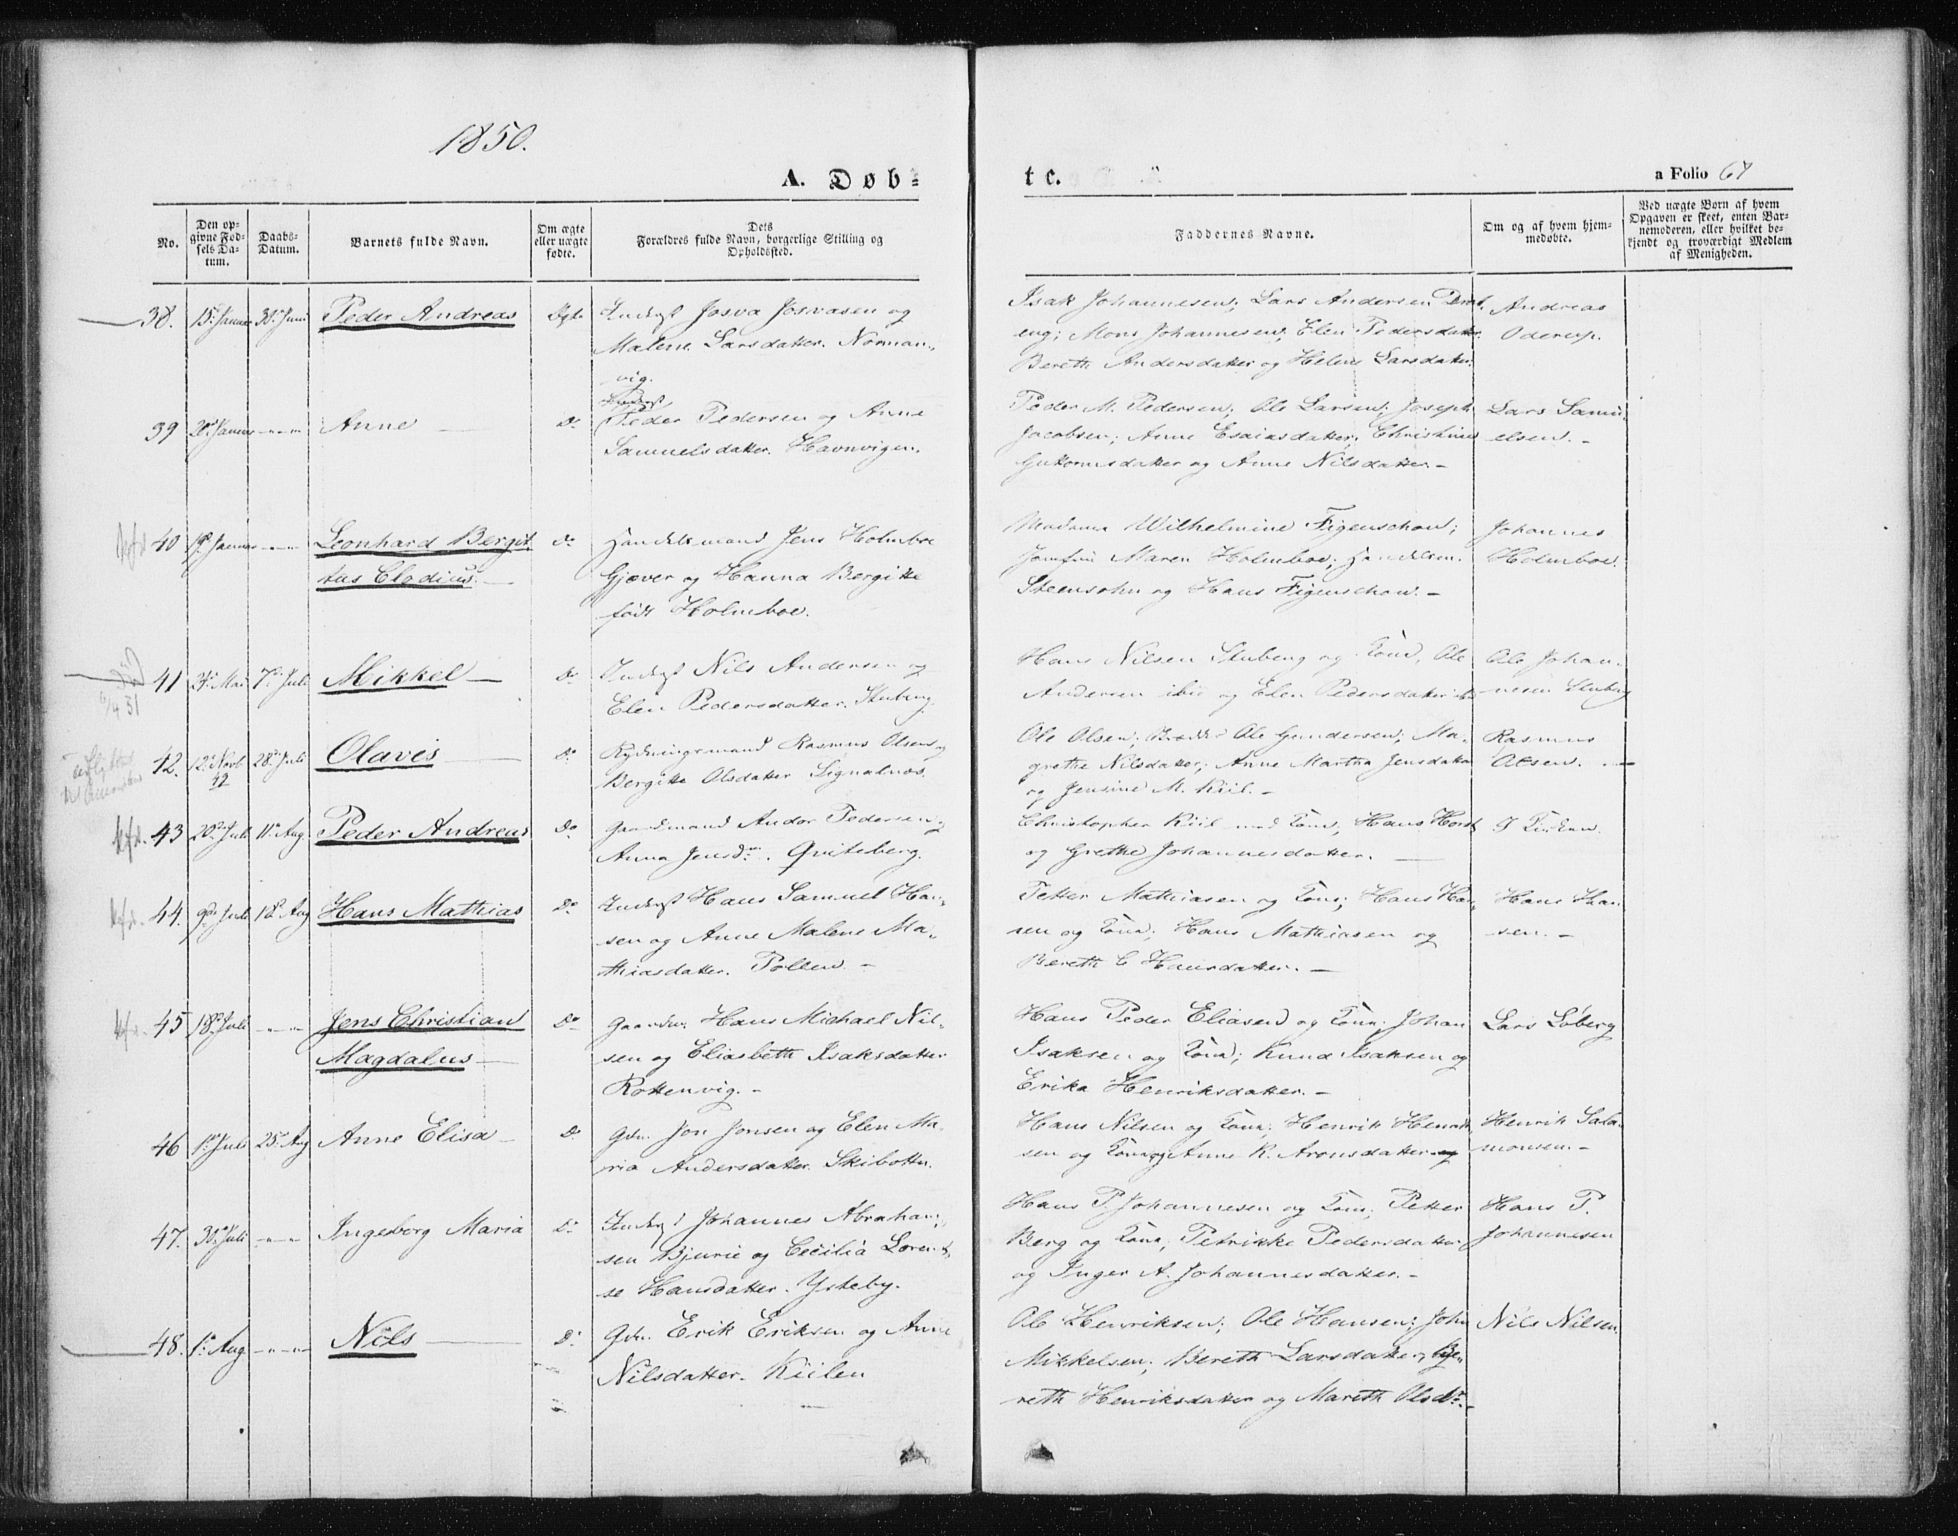 1850.
A. Døb=
te.
a Folio 67
No.
Den opgivne Fødsels Datum.
Daabs-Datum.
Barnets fulde Navn.
Om ægte eller uægte fødte.
Dets Forældres fulde Navn, borgerlige Stilling og Opholdssted.
Faddernes Navne.
Om og af hvem hjemmedøbte.
Ved uægte Børn af hvem Opgaven er skeet, enten Barnemoderen, eller hvilket bekjendt og troværdigt Medlem af Menigheden.
38. 15. Januar 30. Juni Peder Andreas Ægte Inderst Josva Josvasen og
Malene Larsdatter. Norman-
vig.
Isak Johannesen; Lars Andersen
eng; Mons Johannesen; Elen Pedersdatter
Bereth Andersdatter og Helene Larsdatter
Andreas
39 20. Januar Anne — Do Inderst
Peder Pedersen og Anne
Samuelsdatter. Havnvigen.
Peder M. Pedersen; Ole Larsen; Joseph
Jacobsen; Anne Esaiasdatter; Christine
Guttormsdatter og Anne Nilsdatter. —
Lars Samu-
elsen. —
40 19. Januar Leonhard Bergit-
tus Clodius. — Do Handelsmand Jens Holmboe
Gjæver og Hanna Bergitte
født Holmboe.
Madame Wilhelmine Figenschou;
Jomfru Maren Holmboe; Handelsm.
Steensohn og Hans Figenschou. —
Johannes
Holmboe.
6/4 51
41 Mai 7. Juli Mikkel — Do Inderst Nils Andersen og
Elen Pedersdatter. Stuberg.
Hans Nilsen Stuberg og Kone, Ole
Andersen ibid og Elen Pedersdatter
Ole Johan-
nesen Stuberg
42. 12. Novb 49 28. Juli Olavis — Do Rydningsmand Rasmus Olsen og
Bergitte Olsdatter Signalnæs.
Ole Olsen; Ole Gundersen; Ma-
grethe Nilsdatter; Anne Martha Jensdatter
og Jensine M. Kiil. —
Rasmus
Olsen. —
43 20. Juli 11. Aug Peder Andreas Do Gaardmand Andor Pedersen og
Anna Jensdr. Qviteberg.
Christopher Kiil med Kone; Hans Horst
og Grethe Johannesdatter. —
44. 9. Juli 18. Aug Hans Mathias Do Inderst Hans Samuel Han-
sen og Anne Malene Ma-
thiasdatter. Pollen. —
Petter Mathiasen og Kone; Hans Han-
sen og Kone; Hans Mathiasen og
Bereth C Hansdatter. —
Hans Han-
sen. —
45 18. Juli Jens Christian
Magdalus — Do Gaardm. Hans Michael Nil-
sen og Eliasbeth Isaksdatter
Rottenvig. —
Hans Peder Eliasen og Kone; Johan
Isaksen og Kone; Knud Isaksen og
Erika Henriksdatter. —
Lars Løberg
46 1. Juli 25. Aug Anne Elisa — Do Gdm. Jon Jonsen og Elen Ma-
ria Andersdatter. Skibotten.
Hans Nilsen og Kone; Henrik Henrik-
sen og Kone og Anne K. Aronsdatter
Henrik Sala-
monsen. —
47. 30. Juli Ingeborg Maria Do Inderst Johannes Abraham-
sen Bjurie og Cecilia Loren-
se Hansdatter. Ysteby.
Hans P. Johannesen og Kone; Petter
Berg og Kone; Petrikke Pedersdatter
og Inger A. Johannesdatter. —
Hans P.
Johannesen
48. 1. Aug Nils — Do Gdm. Erik Eriksen og Anne
Nilsdatter. Kiilen
Ole Henriksen; Ole Hansen; John
Mikkelsen; Bereth Larsdatter, Be-
reth Henriksdatter og Mareth Olsdr. —
Nils Nilsen